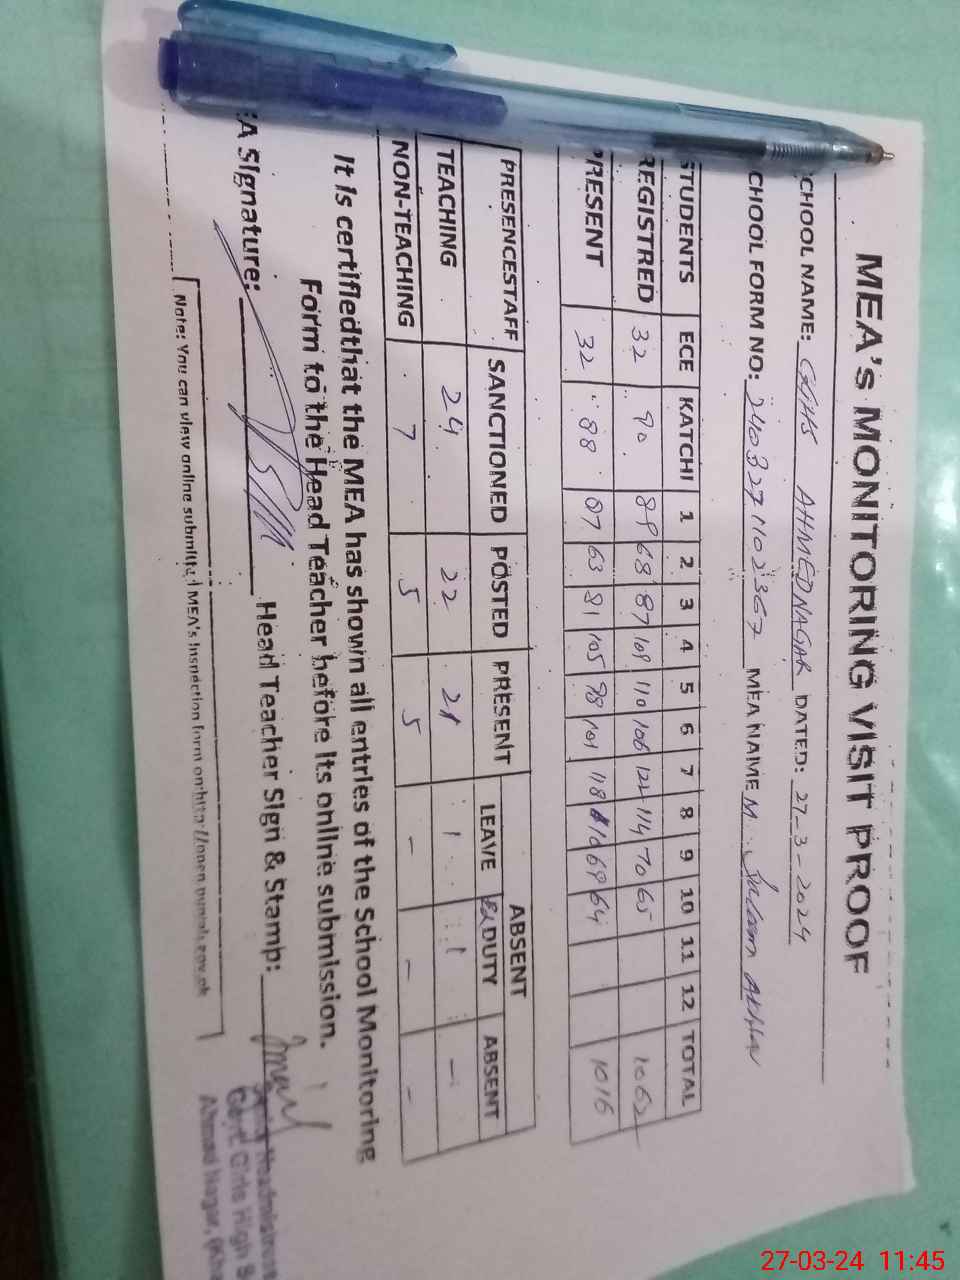 MEA's MONITORING VISIT PROOF
CHOOL NAME: GGHS AHMEDNAGAR DATED: 27-3-2024
CHOOL FORM NO: 2403271102367 MEA NAME M. Akhtar
STUDENTS ECE KATCHI 1 2 3 4 5 6 7 8 9 10 11 12 TOTAL
REGISTRED 32 90 89 68 87 109 110 106 122 114 70 65 1062
PRESENT 32 88 87 63 81 105 98 101 118 110 69 64 1016
PRESENCESTAFF SANCTIONED POSTED PRESENT ABSENT
LEAVE DUTY ABSENT
TEACHING 24 22 21 1 1 -
NON-TEACHING 7 5 5 - - -
It is certifiedthat the MEA has shown all entries of the School Monitoring
Form to the Head Teacher before its online submission.
:A Signature: Head Teacher Sign & Stamp:
Headmistress
Govt. Girls High S
Ahmad Nagar,
Note: You can view online submitted MEA's Inspection form on:http://open.punjab.gov.pk
27-03-24 11:45